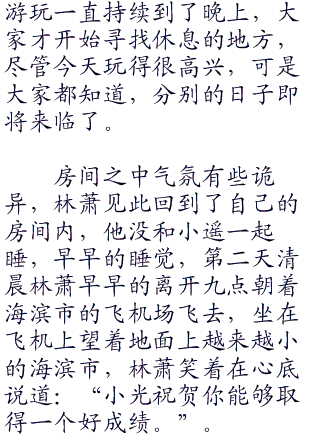 游玩一直持续到了晚上，大
家才开始寻找休息的地方，
尽管今天玩得很高兴，可是
大家都知道，分别的日子即
将来临了。
房间之中气氛有些诡
异，林萧见此回到了自己的
房间内，他没和小遥一起
睡，早早的睡觉，第二天清
晨林萧早早的离开九点朝着
海滨市的飞机场飞去，坐在
飞机上望着地面上越来越小
的海滨市，林萧笑着在心底
说道：“小光祝贺你能够取
得一个好成绩。”。